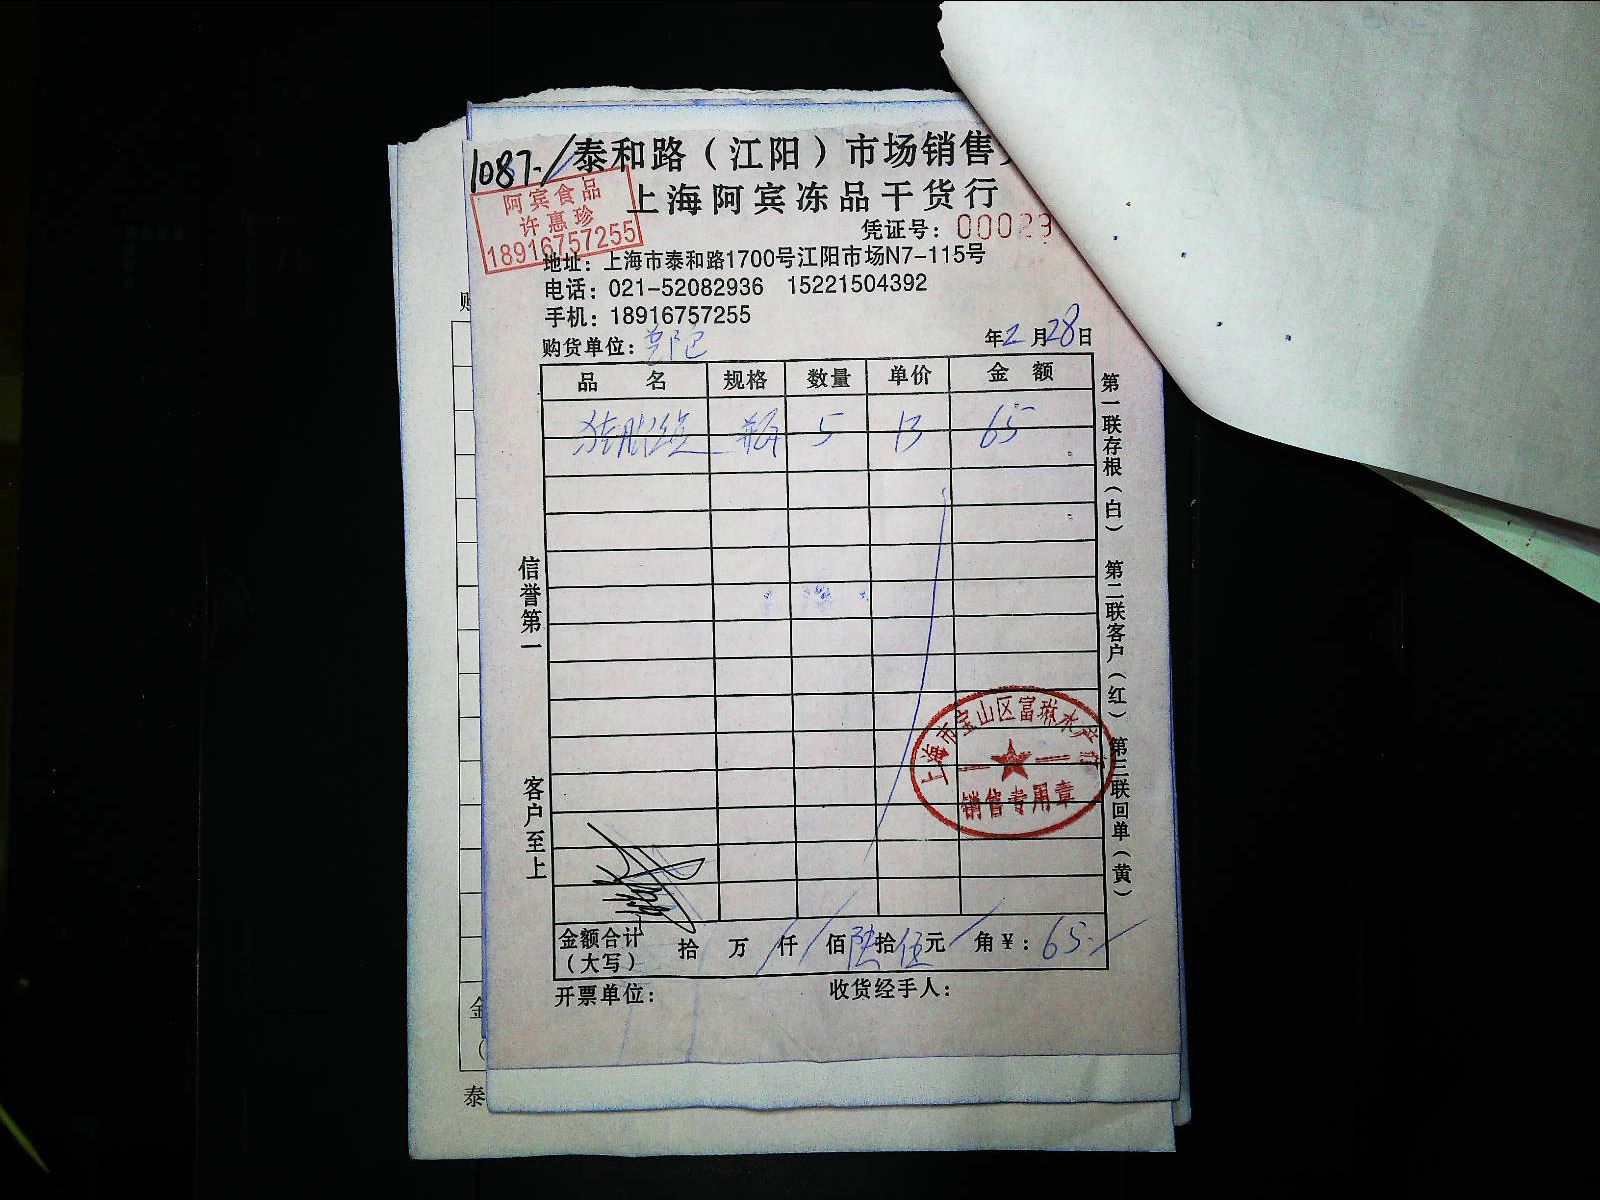 1087.-/
泰和路（江阳）市场销售
上海阿宾冻品干货行
阿宾食品
许惠珍
18916757255
凭证号：00029
地址：上海市泰和路1700号江阳市场N7-115号
电话：021-52082936 15221504392
手机：18916757255
购货单位： 年2月28日
品 名 规格 数量 单价 金 额
瓶 5 13 65
信誉第一
客户至上
第一联存根（白） 第二联客户（红） 第三联回单（黄）
上海市宝山区富琳水产行
销售专用章
金额合计（大写） 拾 万 仟 佰陆拾伍元 角¥：65.-
开票单位： 收货经手人：
金
泰